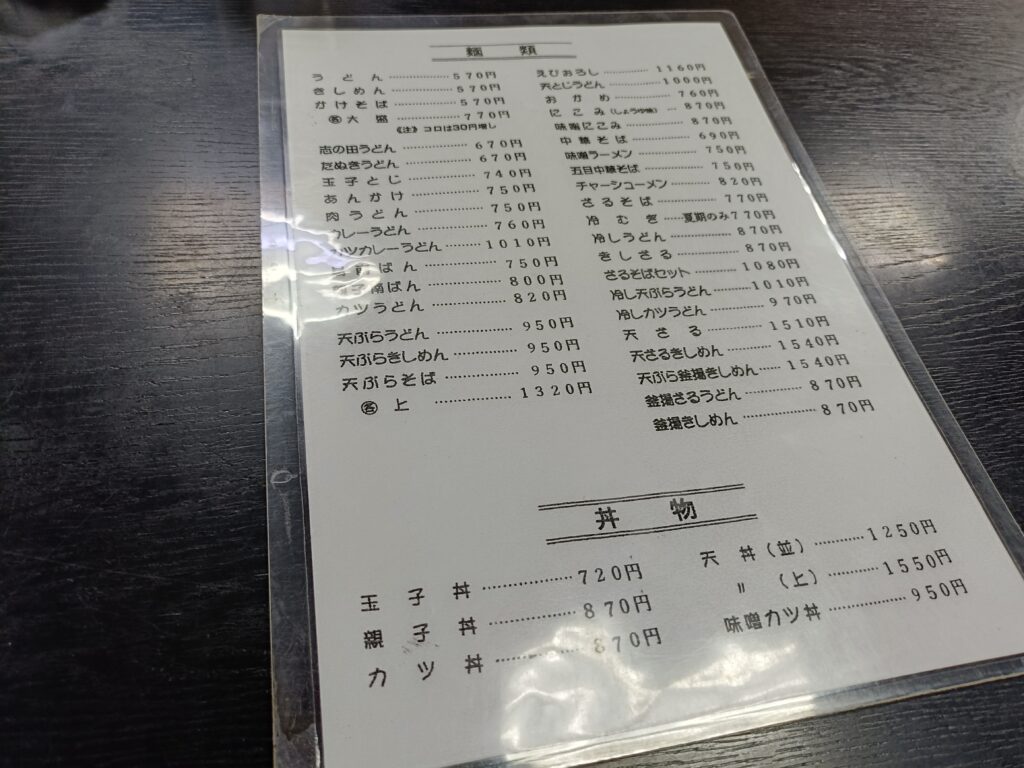 麺類
うどん………570円
きしめん………570円
かけそば………570円
㊅大盛………770円
《注》コロは30円増し
志の田うどん………670円
たぬきうどん………670円
玉子とじ………740円
あんかけ………750円
肉うどん………750円
カレーうどん………760円
カツカレーうどん………1010円
南ばん………750円
南ばん………800円
カツうどん………820円
天ぷらうどん………950円
天ぷらきしめん………950円
天ぷらそば………950円
上………1320円
えびおろし………1160円
天とじうどん………1000円
おかめ………760円
にこみ(しょうゆ味)…870円
味噌にこみ………870円
中華そば………690円
味噌ラーメン………750円
五目中華そば………750円
チャーシューメン………820円
ざるそば………770円
冷むぎ……夏期のみ770円
冷しうどん………870円
きしざる………870円
ざるそばセット………1080円
冷し天ぷらうどん………1010円
冷しカツうどん………970円
天ざる………1510円
天ざるきしめん………1540円
天ぷら釜揚きしめん……1540円
釜揚ざるうどん………870円
釜揚きしめん………870円
丼物
玉子丼………720円
親子丼………870円
カツ丼………870円
天丼(並)………1250円
〃(上)………1550円
味噌カツ丼………950円